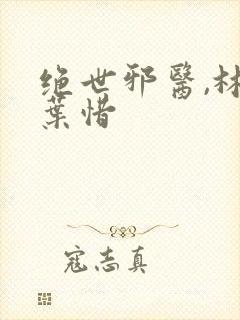 绝世邪醫,林
葉惜
寇志真